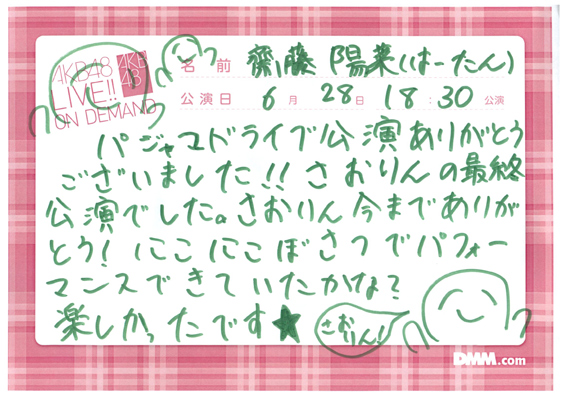 AKB48
LIVE!!
ON DEMAND
AKB
48
名前 齋藤 陽菜(はーたん)
公演日 6月28日 18:30公演
パジャマドライブ公演ありがとう
ございました!!さおりんの最終
公演でした。さおりん今までありが
とう!にこにこぼさつでパフォー
マンスできていたかな?
楽しかったです★
さおりん!!
DMM.com